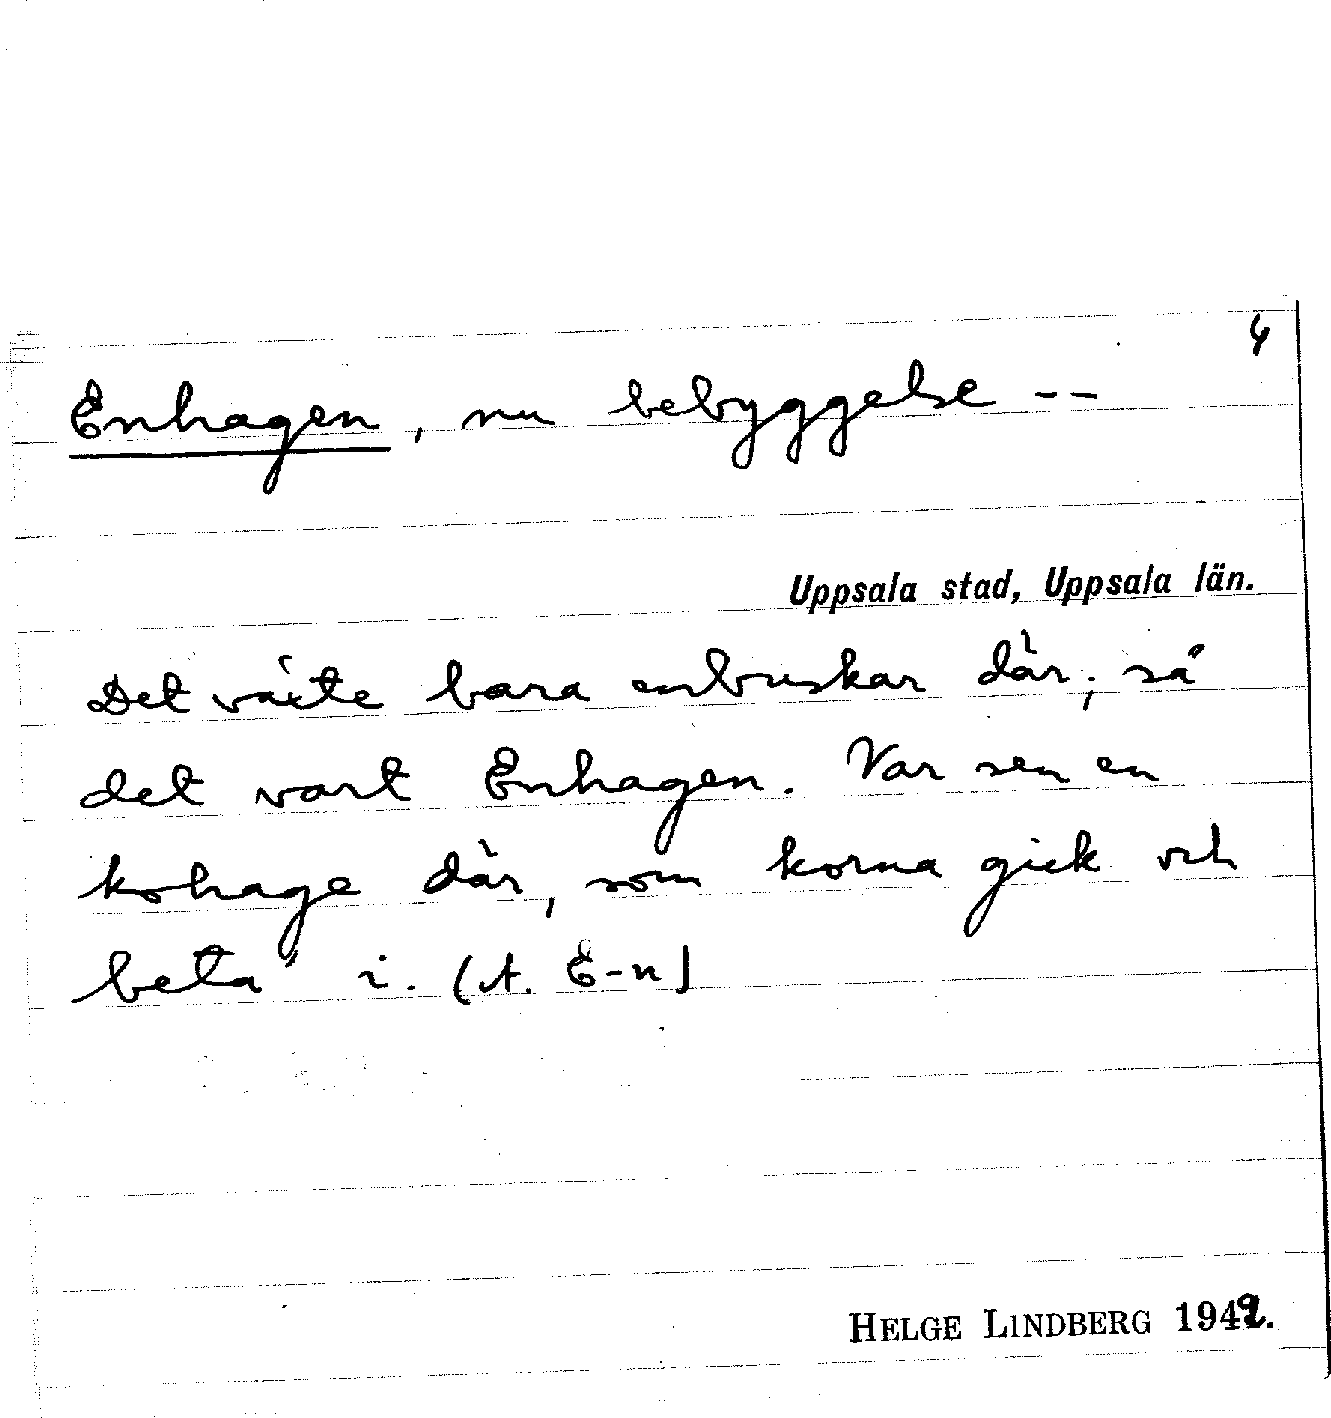 4
Enhagen, nu bebyggelse --
Uppsala stad, Uppsala län.
Det växte bara enbuskar där; så
det vart Enhagen. Var sen en
kohage där, som korna gick och
beta' i. (A. E-n)
HELGE LINDBERG 1949.